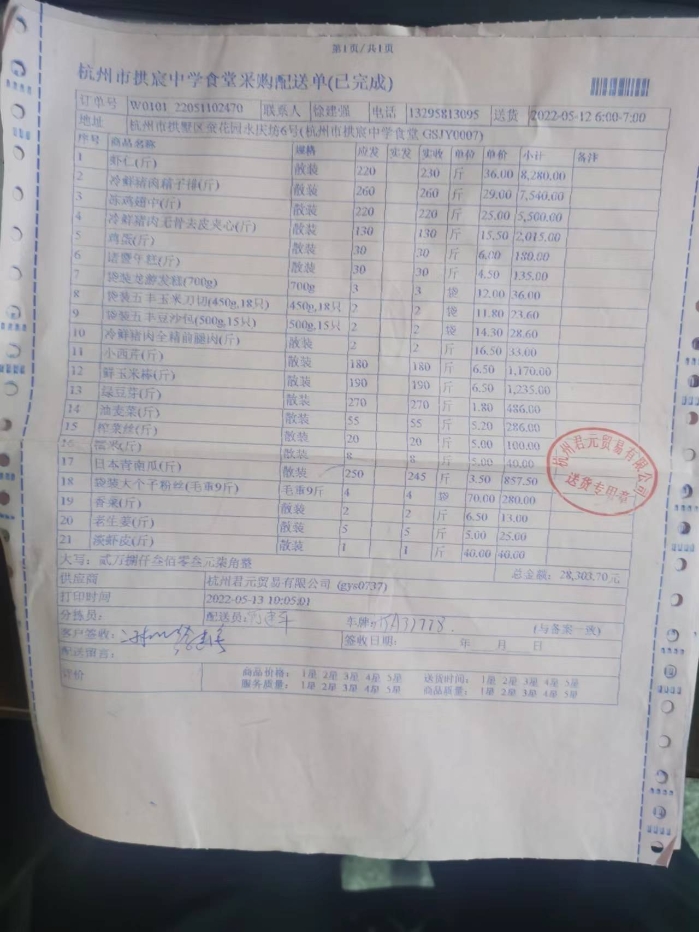 第1页/共1页
杭州市拱宸中学食堂采购配送单(已完成)
订单号 W0101_22051102470 联系人 徐建强 电话 13295813095 送货 2022-05-12 6:00-7:00
地址 杭州市拱墅区莲花园永庆坊6号(杭州市拱宸中学食堂 GSJY0007)
序号 商品名称 规格 应发 实发 实收 单位 单价 小计 备注
1 虾仁(斤) 散装 220 230 斤 36.00 8,280.00
2 冷鲜猪肉精子排(斤) 散装 260 260 斤 29.00 7,540.00
3 冻鸡翅中(斤) 散装 220 220 斤 25.00 5,500.00
4 冷鲜猪肉无骨去皮夹心(斤) 散装 130 130 斤 15.50 2,015.00
5 鸡蛋(斤) 散装 30 30 斤 6.00 180.00
6 诸暨年糕(斤) 散装 30 30 斤 4.50 135.00
7 袋装龙游发糕(700g) 700g 3 3 袋 12.00 36.00
8 袋装五丰玉米刀切(450g,18只) 450g,18只 2 2 袋 11.80 23.60
9 袋装五丰豆沙包(500g,15只) 500g,15只 2 2 袋 14.30 28.60
10 冷鲜猪肉全精前腿肉(斤) 散装 2 2 斤 16.50 33.00
11 小西芹(斤) 散装 180 180 斤 6.50 1,170.00
12 鲜玉米棒(斤) 散装 190 190 斤 6.50 1,235.00
13 绿豆芽(斤) 散装 270 270 斤 1.80 486.00
14 油麦菜(斤) 散装 55 55 斤 5.20 286.00
15 榨菜丝(斤) 散装 20 20 斤 5.00 100.00
16 散装 8 8 斤 5.00 40.00
17 日本青南瓜(斤) 散装 250 245 斤 3.50 857.50
18 袋装大个子粉丝(毛重9斤) 毛重9斤 4 4 袋 70.00 280.00
19 香菜(斤) 散装 2 2 斤 6.50 13.00
20 老生姜(斤) 散装 5 5 斤 5.00 25.00
21 淡虾皮(斤) 散装 1 1 斤 40.00 40.00
大写: 贰万捌仟叁佰零叁元柒角整 总金额: 28,303.70元
供应商 杭州君元贸易有限公司 (gys0737)
打印时间 2022-05-13 10:05:01
分拣员: 配送员: 车牌: (与备案一致)
客户签收: 签收日期: 年 月 日
配送留言:
评价 商品价格: 1星 2星 3星 4星 5星 送货时间: 1星 2星 3星 4星 5星
服务质量: 1星 2星 3星 4星 5星 商品质量: 1星 2星 3星 4星 5星
杭州君元贸易有限公司
送货专用章